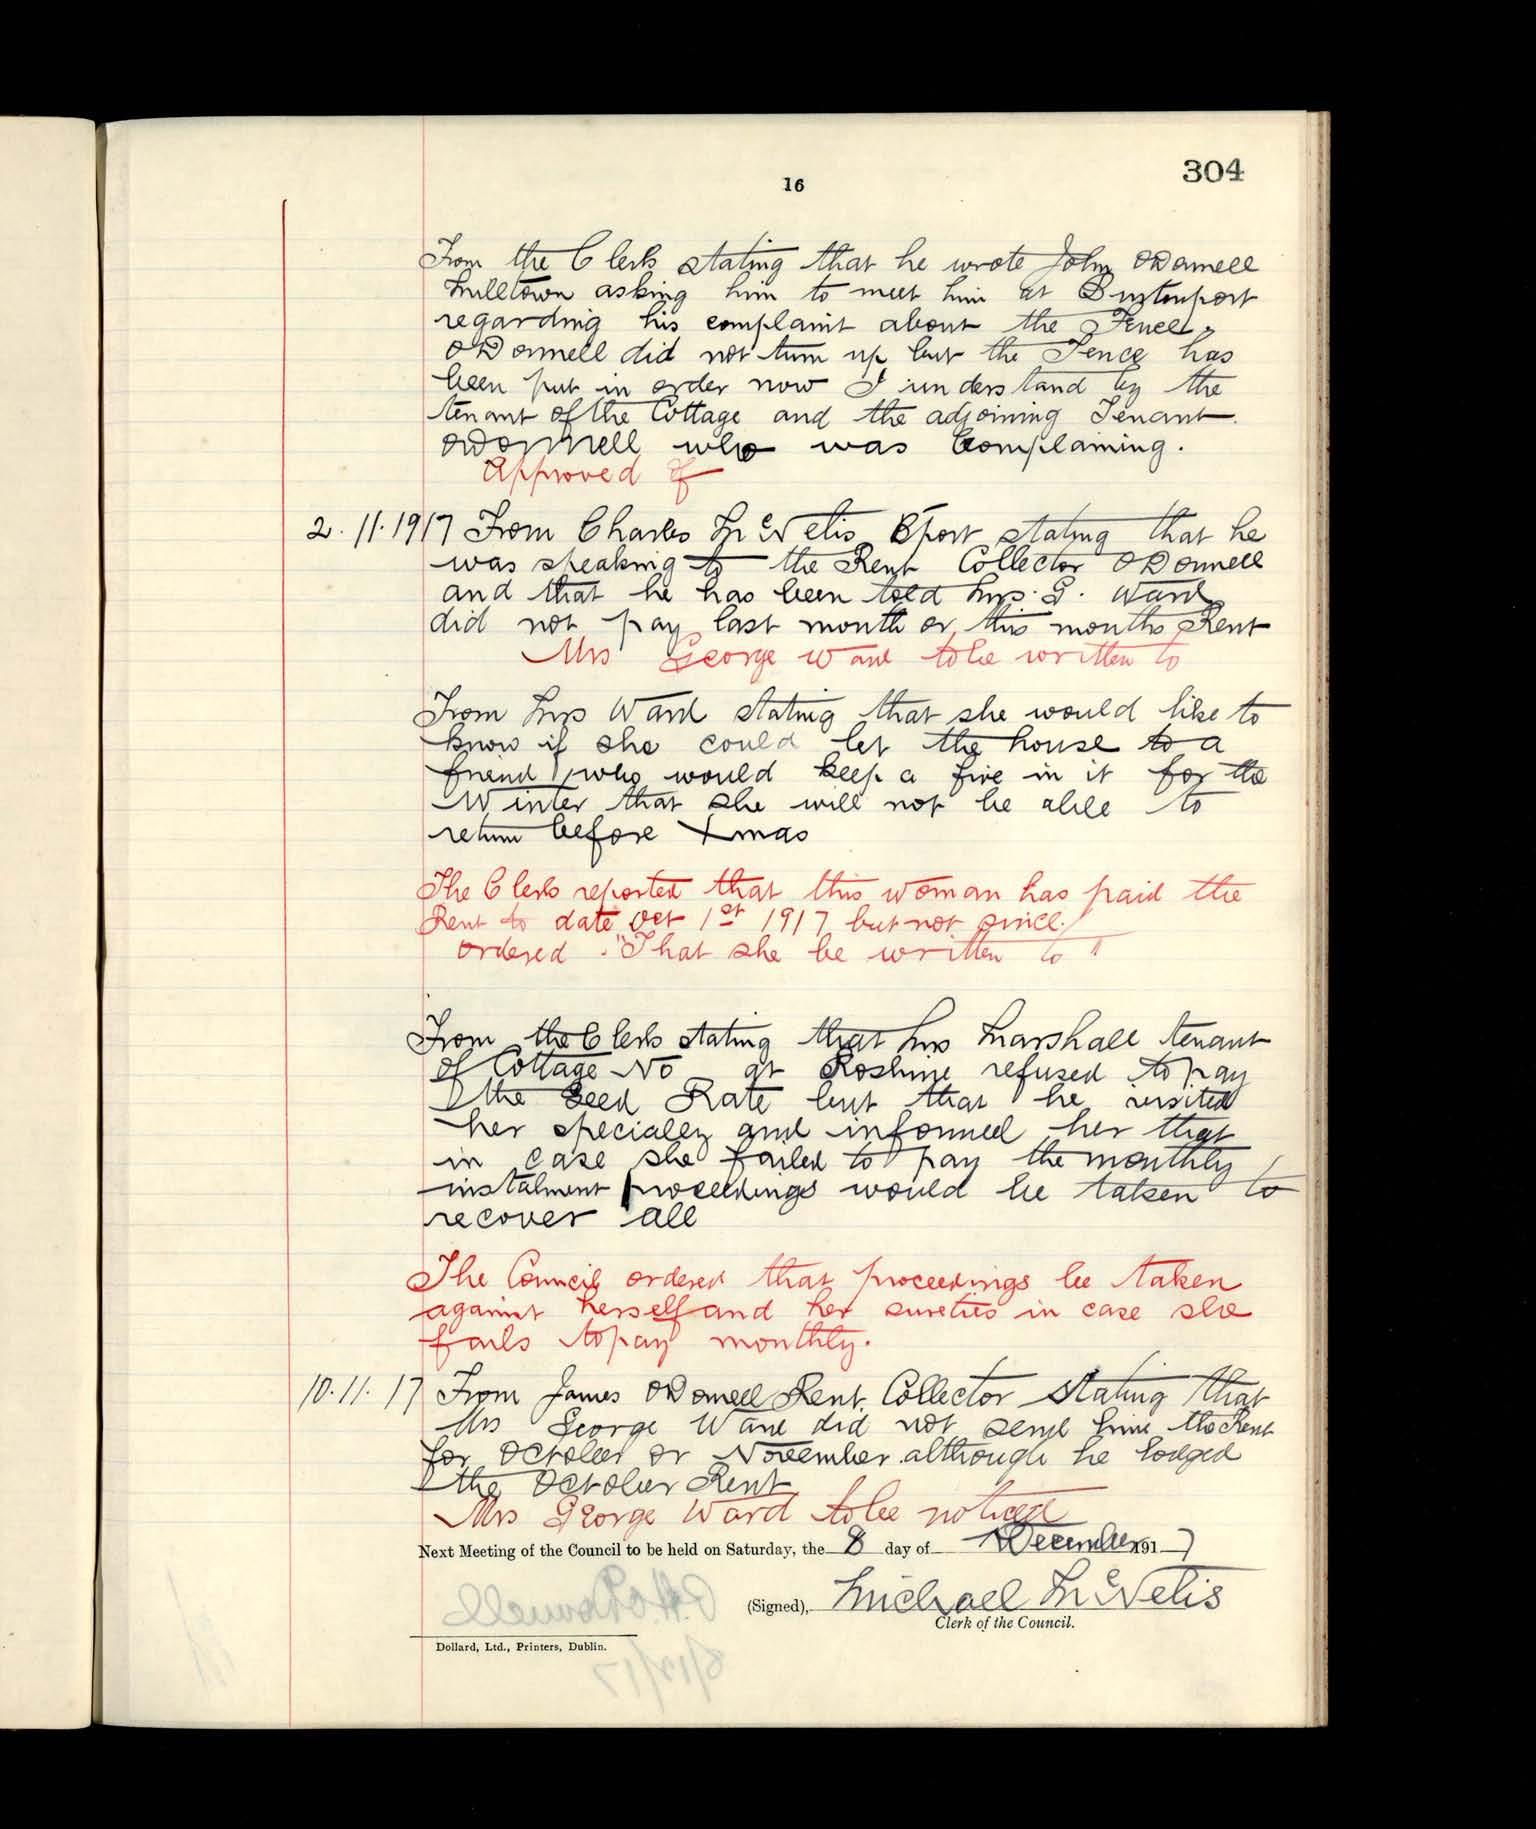 304
16
From the Clerk stating that he wrote John ODonnell
Milltown asking him to meet him at Burtonport
regarding his complaint about the Fence,
ODonnell did not turn up but the Fence has
been put in order now I understand by the
tenant of the Cottage and the adjoining Tenant.
ODonnell who was Complaining.
Approved of
2.11.1917 From Charles McNelis Bport stating that he
was speaking to the Rent Collector ODonnell
and that he has been told Mrs. G. Ward
did not pay last month or this months Rent
Mrs George Ward to be written to
From Mrs Ward stating that she would like to
know if she could let the house to a
friend who would keep a fire in it for the
Winter that she will not be able to
return before Xmas
The Clerk reported that this woman has paid the
Rent to date Oct 1st 1917 but not since.
Ordered "That she be written to"
From the Clerk stating that Mrs Marshall tenant
of Cottage No at Roshine refused to pay
the Seed Rate but that he visited
her specially and informed her that
in case she failed to pay the monthly
instalment proceedings would be taken to
recover all
The Council ordered that proceedings be taken
against herself and her sureties in case she
fails to pay monthly.
10.11.17 From James ODonnell Rent Collector Stating that
Mrs George Ward did not send him the Rent
for October or November although he lodged
the October Rent
Mrs George Ward to be noticed
Next Meeting of the Council to be held on Saturday, the 8 day of December 1917
(Signed), Michael McNelis
Clerk of the Council.
Dollard, Ltd., Printers, Dublin.